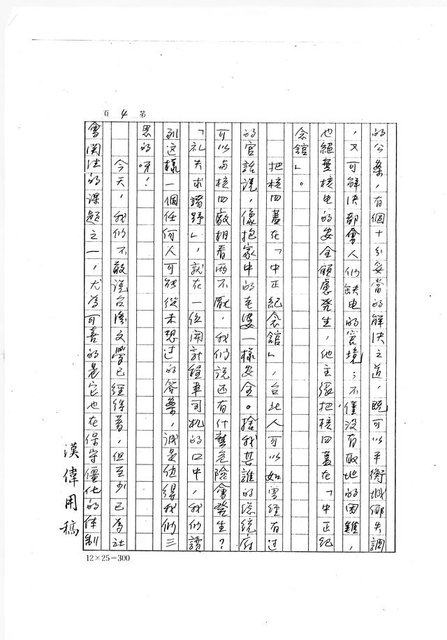 第 4 頁
的公案，有個十分妥當的解決之道，既可以平衡城鄉失調
，又可解決都會人們缺电的窘境；不僅沒有敵地的困難，
也絕無核电的安全顧慮發生，他主張把核四蓋在「中正紀
念館」。
把核四蓋在「中正紀念館」，台北人可以如雷經有过
的官話說，像抱家中的老婆一樣安全。捨我其誰的總統府
可以与核四廠相看两不厭，我們說还有什麼危險會發生？
「礼失求諸野」，就在一位閩計程車司机的口中，我們讀
到这樣一個任何人可能從未想过的答案，誠是值得我們三
思的呀！
今天，我們不敢說台湾文學已經修著，但至少已為社
會関注的課題之一，尤為可喜的是它也在保守僵化的体制
漢偉用稿
12×25=300